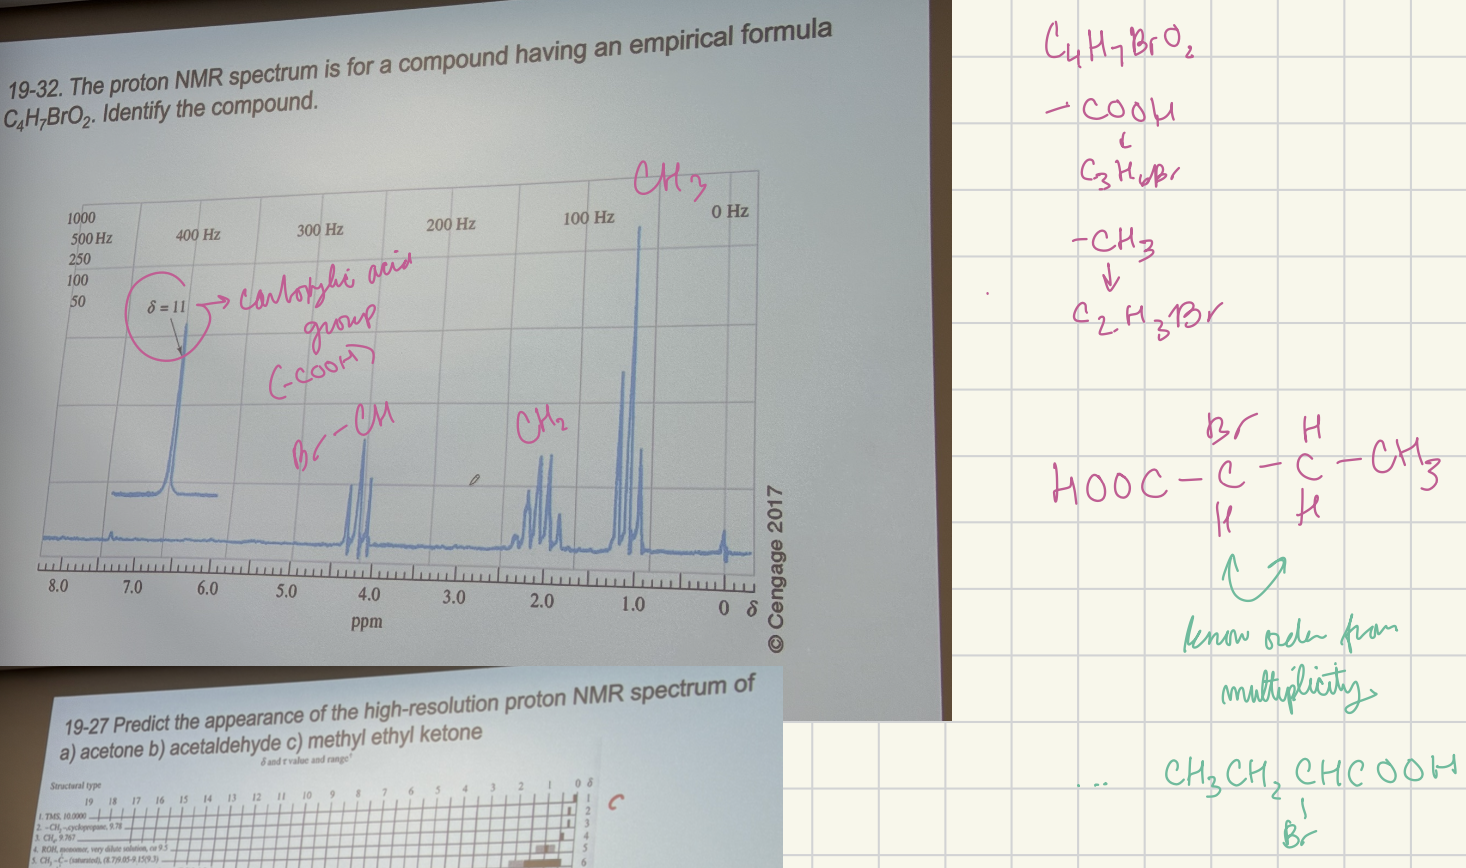 19-32. The proton NMR spectrum is for a compound having an empirical formula
C₄H₇BrO₂. Identify the compound.
CH₃
1000
500 Hz
400 Hz
300 Hz
200 Hz
100 Hz
0 Hz
250
100
50
δ = 11
→ carboxylic acid
group
(-COOH)
Br-CH
CH₂
8.0 7.0 6.0 5.0 4.0 3.0 2.0 1.0 0 δ
ppm
© Cengage 2017
C₄H₇BrO₂
- COOH
C₃H₆Br
-CH₃
↓
C₂H₃Br
Br H
HOOC - C - C - CH₃
H H
know order from
multiplicity
... CH₃CH₂CHCOOH
Br
19-27 Predict the appearance of the high-resolution proton NMR spectrum of
a) acetone b) acetaldehyde c) methyl ethyl ketone
δ and τ value and range†
Structural type
19 18 17 16 15 14 13 12 11 10 9 8 7 6 5 4 3 2 1 0 δ
1. TMS, 10.0000 1
2. -CH₂-, cyclopropane, 9.78 2
3. CH₄, 9.767 3
4. ROH, monomer, very dilute solution, ca 9.5 4
5
6